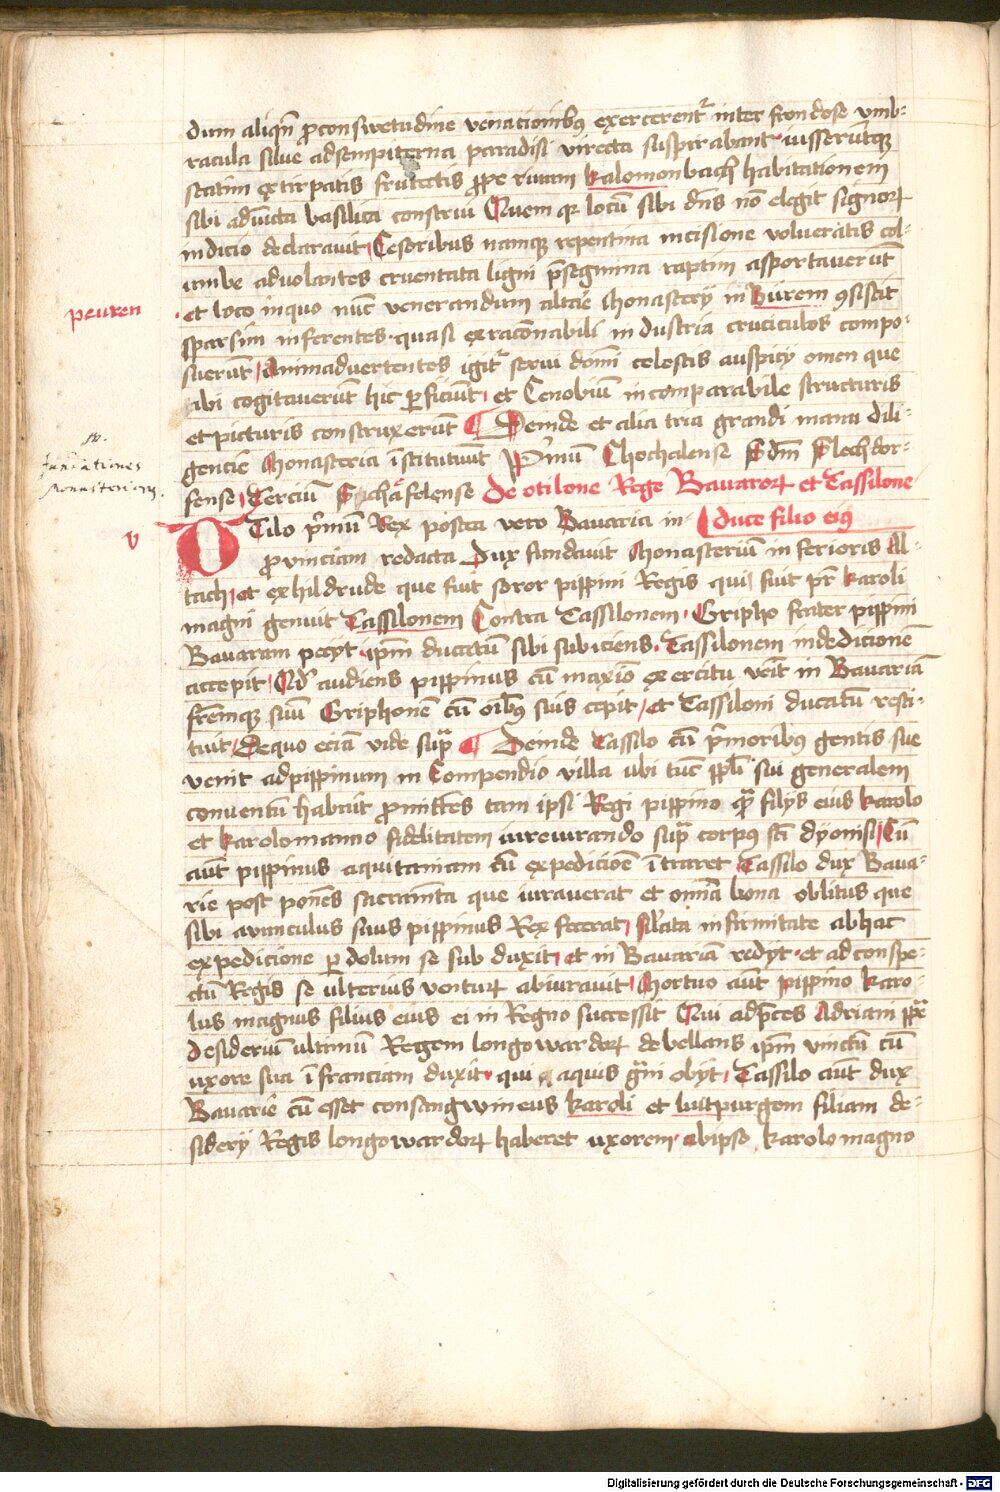 dum aliqn̄ p̱ conswetudine venacionibꝰ exercerent᷑ inter frondose vmb-
racula silue ad sempiterna paradisi virecta suspirabant iusserūtqꝫ
statim extirpatis frutetis p̱pe riuum kalomonbach habitationem
sibi adiūcta basilica construi Quem qꝫ locū sibi dn̄s nō elegit signoꝝ
indicio declarauit Cesoribus namqꝫ repentina incisione volueratis col-
umbe aduolantes cruentata ligni p̄segmina raptim asportauerūt
peuren
et loco in quo nūc venerandum altare Monasterij in Bůrem ꝯsistit
sparsim inferentes quasi ex racōnabili industria cruciculos compo-
suerūt Animaduertentes igit᷑ serui domī celestis auspicij omen que
ibi cogitauerūt hic ꝑficiūt et Cenobiū incomparabile structuris
et picturis construxerūt Deinde et alia tria grandi manu dili-
fundationes
monasteriorum.
gencie Monasteria īstitutuūt Pⁱmū Chochalense Scdm̄ Slechdor-
fense Tercium Schäfelense De otilone Rege Bauaroꝝ et Tassilone
duce filio eiꝰ
v
OTilo pⁱmū Rex postea vero Bauaria in
prouinciam redacta Dux fundauit Monasteriū inferioris Al-
tach et ex hildrude que fuit soror pippini Regis qui fuit pr̄ karoli
magni genuit Tassilonem Contra Tassilonem Gripho frater pippini
Bauaram pecyt ipm̄ ducatū sibi subiciens Tassilonem in dedicionē
accepit Qd̓ audiens pippinus cū maxīo exercitu veīt in Bauariā
frēmqꝫ suū Griphonē cū oībꝰ suis cepit et Tassiloni ducatū resti-
tuit De quo eciā vide sup̄ Deinde Tassilo cū pⁱmoribꝰ gentis sue
venit ad pippinum in Compendio villa ubi tūc ppl̄i sui generalem
conuentū habuit promitt̄es tam ipsi Regi pippino qᷓ filijs eius karolo
et karolomanno fidelitatem iureiurando supᷓ corpꝰ sc̄i dyonisi Cū
aūt pippinus aquitaniam cū expedicioē ītraret Tassilo dux Baua-
rie post ponēs sacramēta que iurauerat et omīa bona oblitus que
sibi auunculus suus pippinus Rex fecerat silata infirmitate ab hac
expedicione ꝑ dolum se subduxit et in Bauariā redyt et ad conspe-
ctū Regis se ulterius ventuꝝ abiurauit Mortuo aūt pippino karo-
lus magnus filius eius ei in Regno successit Qui ad p̄ces Adriani ppᷓe
desideriū ultimū Regem longowardoꝝ debellans ipm̄ vinctū cū
uxore sua ī franciam duxit qui aquis gᷓni obijt Tassilo aūt dux
Bauarie cū esset consangwineus karoli et luitpurgem filiam de-
siderij Regis longowardoꝝ haberet uxorem ab ipso karolo magno
Digitalisierung gefördert durch die Deutsche Forschungsgemeinschaft - DFG